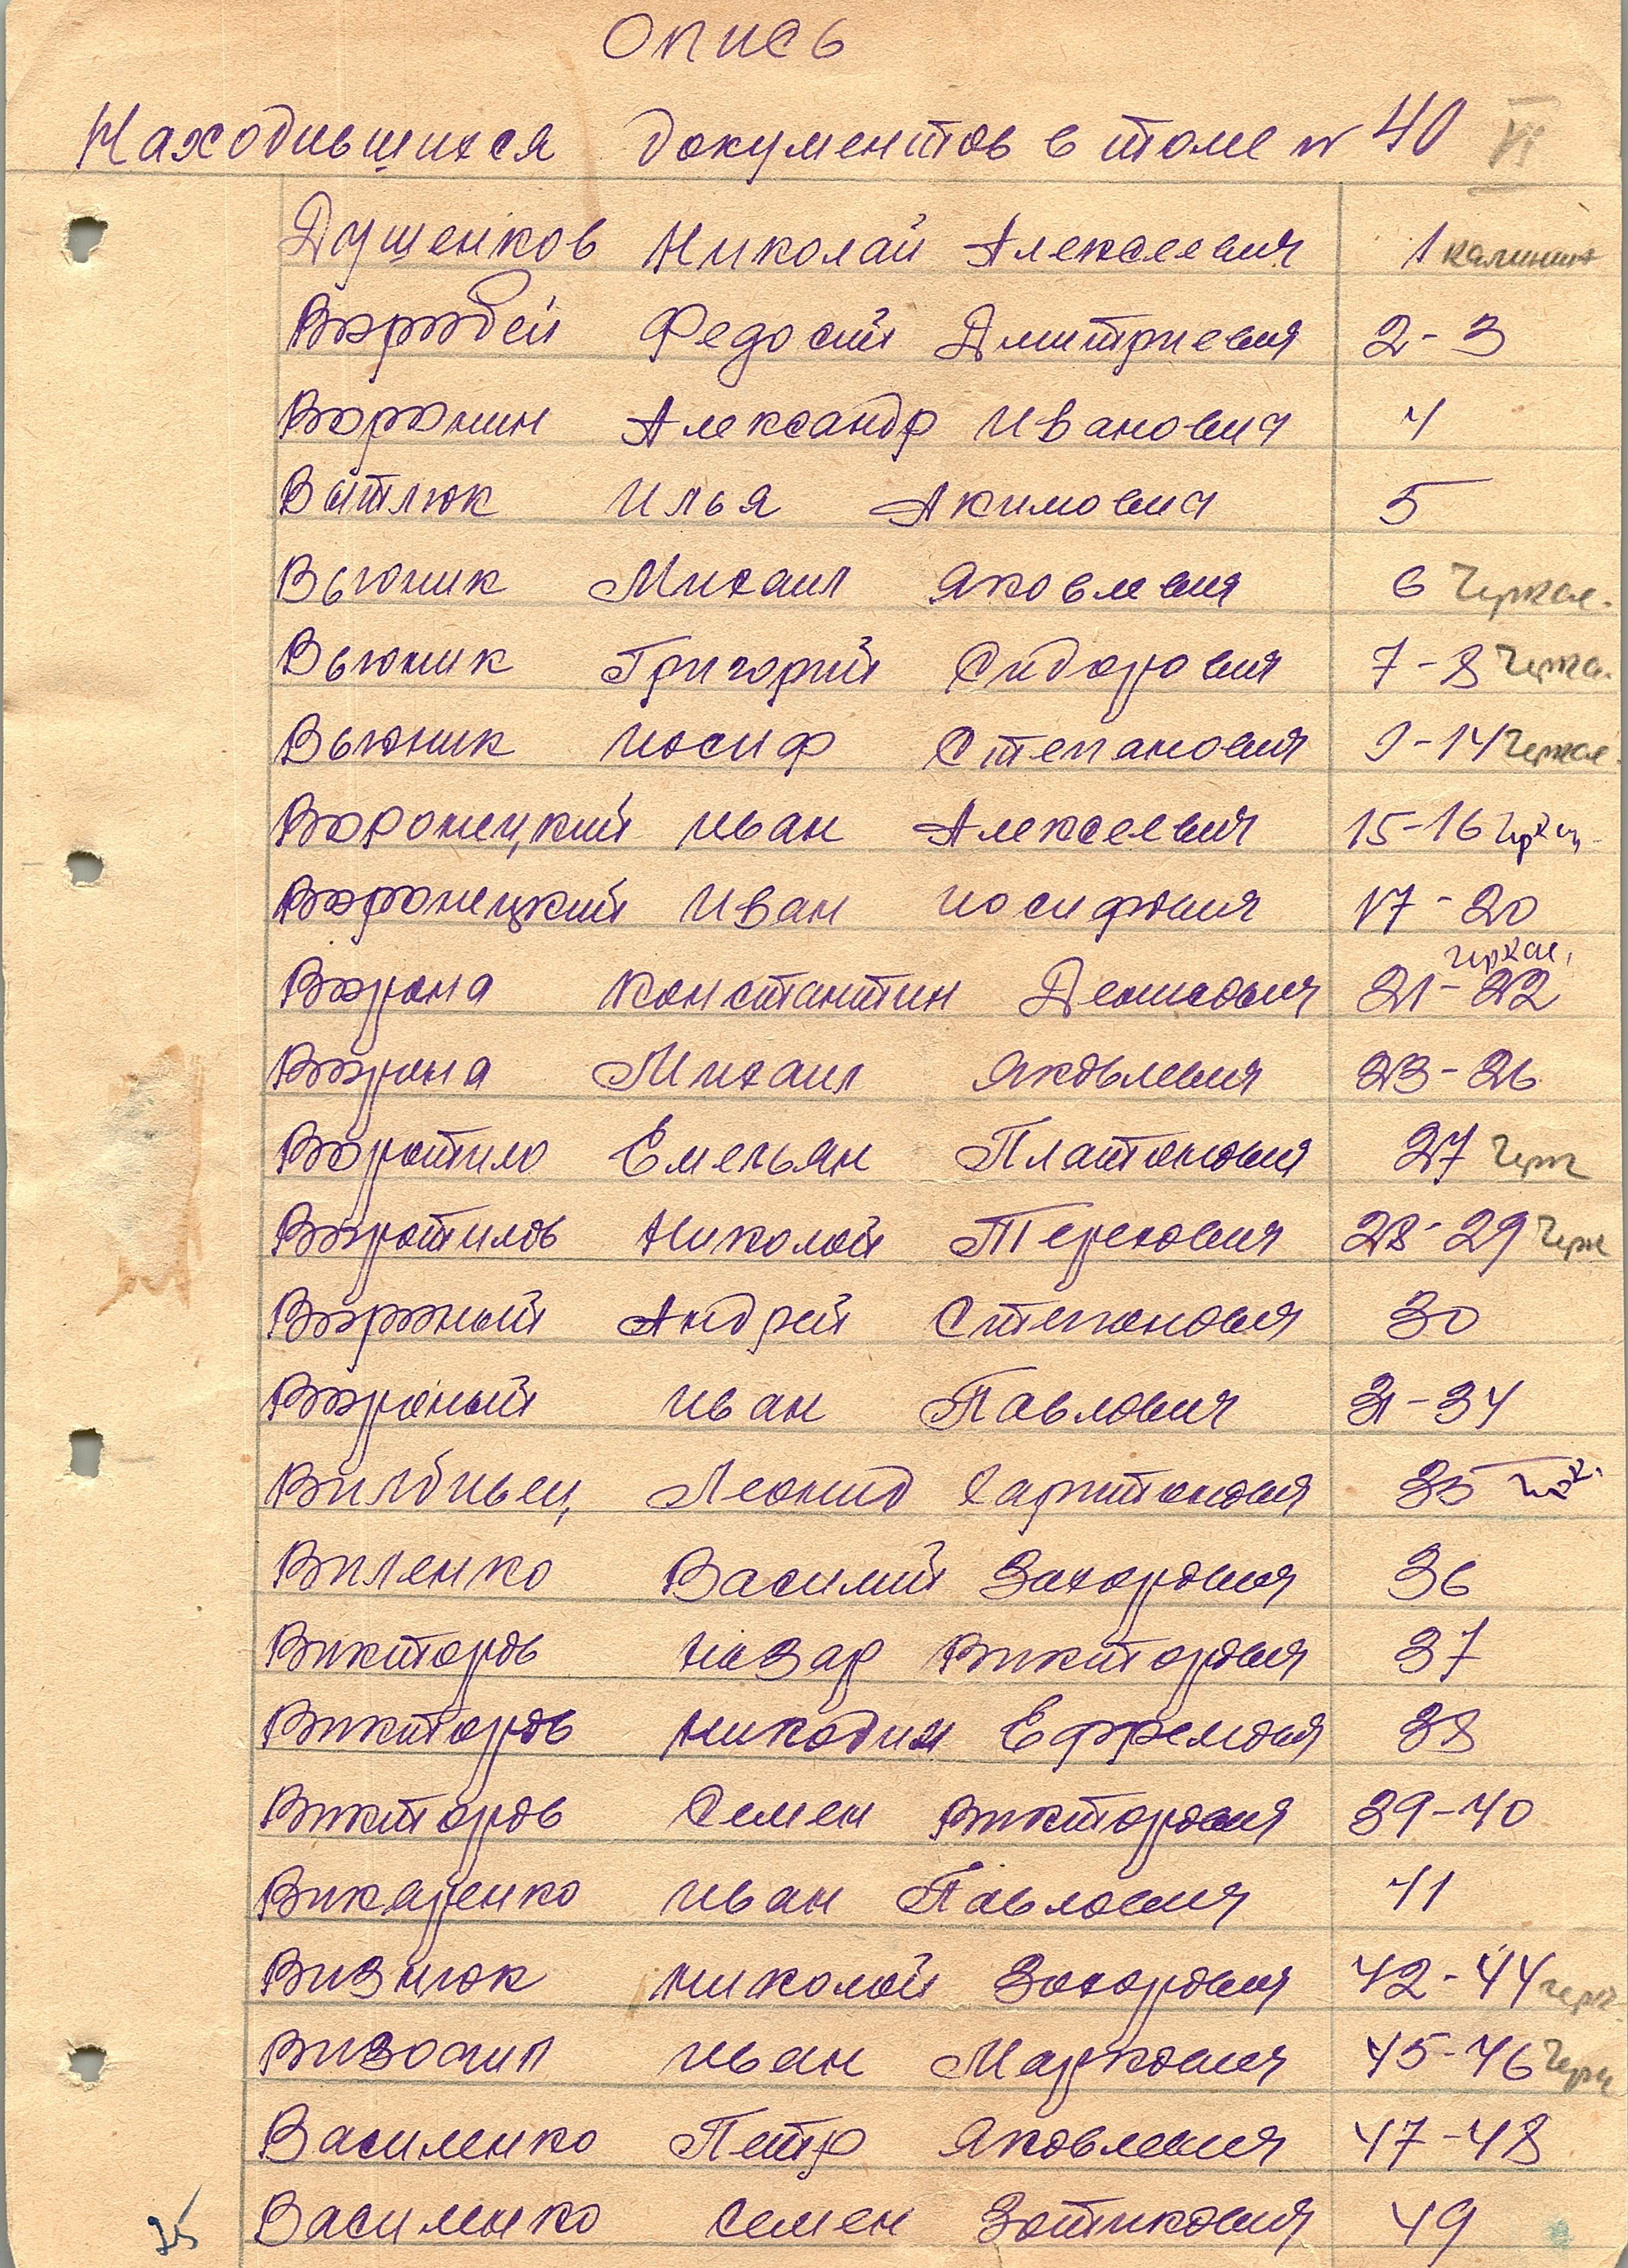 Опись
Находившихся документов в томе № 40 VI
Душенков Николай Алексеевич 1 калинин
Воробей Федосий Дмитриевич 2-3
Воронин Александр Иванович 4
Войтлюк Илья Акимович 5
Вьюник Михаил Яковлевич 6 Черкас.
Вьюник Григорий Сидорович 7-8
Вьюник Иосиф Степанович 9-14 Черкас
Воронецкий Иван Алексеевич 15-16
Воронецкий Иван Иосифович 17-20
черкас.
Ворона Константин Денисович 21-22
Ворона Михаил Яковлевич 23-26
Воротило Емельян Платонович 27 Черк
Воротилов Николай Терехович 28-29 Черк
Вороный Андрей Степанович 30
Вороный Иван Павлович 31-34
Леонид Харитонович 35
Виленко Василий Захарович 36
Викторов Назар Викторович 37
Викторов Никодим Ефремович 38
Викторов Семен Викторович 39-40
Викаренко Иван Павлович 41
Визнюк Николай Захарович 42-44 черк
Иван Маркович 45-46 Черк
Василенко Петр Яковлевич 47-48
Василенко Семен Зотикович 49
25